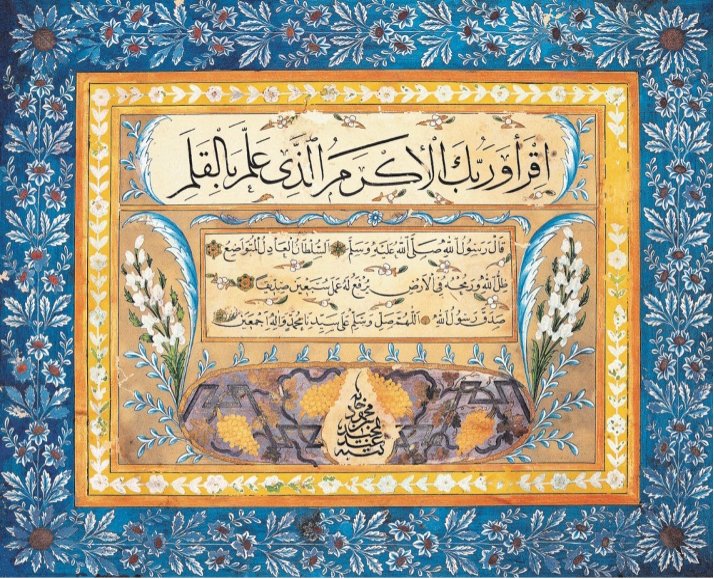 اقْرَأْ وَرَبُّكَ الْأَكْرَمُ الَّذِي عَلَّمَ بِالْقَلَمِ
قَالَ رَسُولُ اللهِ صَلَّى اللهُ عَلَيْهِ وَسَلَّمَ السُّلْطَانُ الْعَادِلُ الْمُتَوَاضِعُ
ظِلُّ اللهِ وَرُمْحُهُ فِي الْأَرْضِ يُرْفَعُ لَهُ عَمَلُ سَبْعِينَ صِدِّيقًا
صَدَقَ رَسُولُ اللهِ اَللّٰهُمَّ صَلِّ وَسَلِّمْ عَلَى سَيِّدِنَا مُحَمَّدٍ وَآلِهِ أَجْمَعِينَ
كتبه
عبد المجيد
بن محمود خان